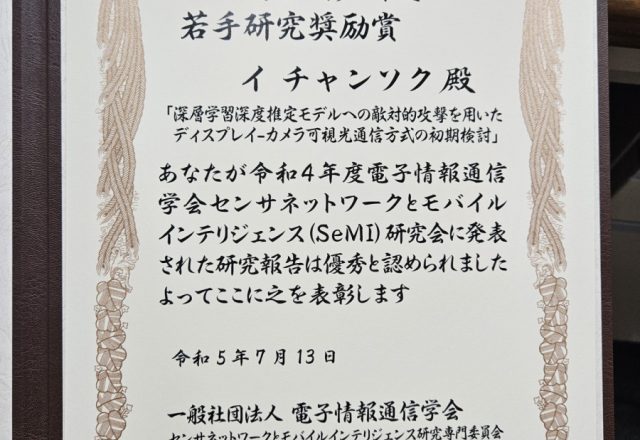 若手研究奨励賞
イ チャンソク 殿
「深層学習深度推定モデルへの敵対的攻撃を用いた
ディスプレイ-カメラ可視光通信方式の初期検討」
あなたが令和4年度電子情報通信
学会センサネットワークとモバイル
インテリジェンス(SeMI)研究会に発表
された研究報告は優秀と認められました
よってここに之を表彰します
令和5年7月13日
一般社団法人 電子情報通信学会
センサネットワークとモバイルインテリジェンス研究専門委員会